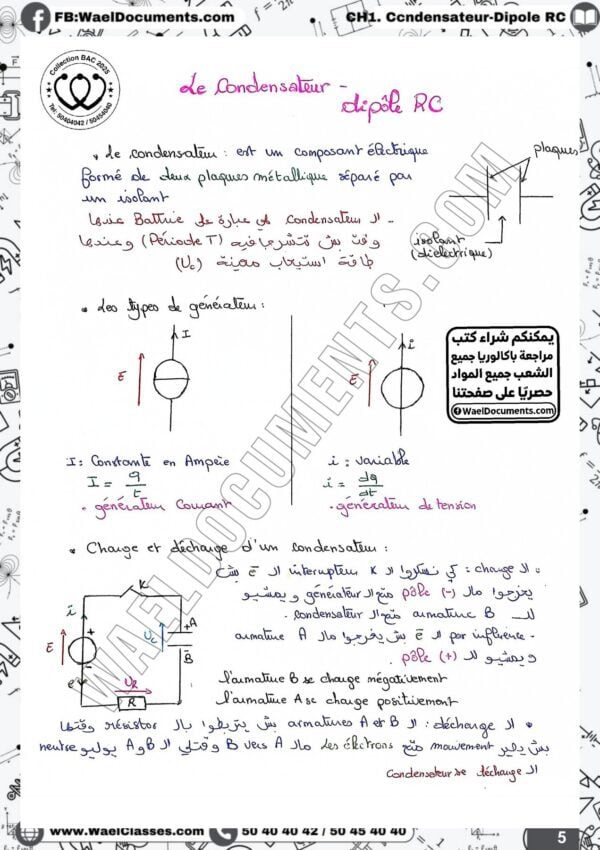 FB:WaelDocuments.com
CH1. Condensateur-Dipole RC
Collection BAC 2025
Tel: 50404042 / 50454040
Le Condensateur -
dipôle RC
• Le condensateur : est un composant électrique
formé de deux plaques métallique séparé par
un isolant
plaques
isolant
(diélectrique)
الـ condensateur هي عبارة على Battrie عندها
وقت بش تتشرجا فيه (Période T) وعندها
طاقة استيعاب معينة (Uc)
• Les types de générateur :
I
E
i
E
يمكنكم شراء كتب
مراجعة باكالوريا جميع
الشعب جميع المواد
حصريًا على صفحتنا
WaelDocuments.com
I : Constante en Ampère
I = q/t
• générateur Courant
i : variable
i = dq/dt
• générateur de tension
• Charge et décharge d'un condensateur :
K
i
E
+
-
e
Uc
+A
B
UR
R
الـ charge : كي نسكروا الـ interrupteur K الـ e بش
يخرجوا مالـ pôle (-) متع الـ générateur و يمشيو
للـ armature B متع الـ condensateur.
- par influence الـ e بش يخرجوا مالـ armature A
و يمشيو للـ pôle (+)
l'armature B se charge négativement
l'armature A se charge positivement
الـ décharge : الـ armatures A et B بش يتربطوا بالـ résistor وقتها
بش يصير mouvement متع Les électrons مالـ B vers A وقتلي الـ A و B يوليو neutre
الـ Condensateur se décharge
WAELDOCUMENTS.COM
www.WaelClasses.com
50 40 40 42 / 50 45 40 40
5